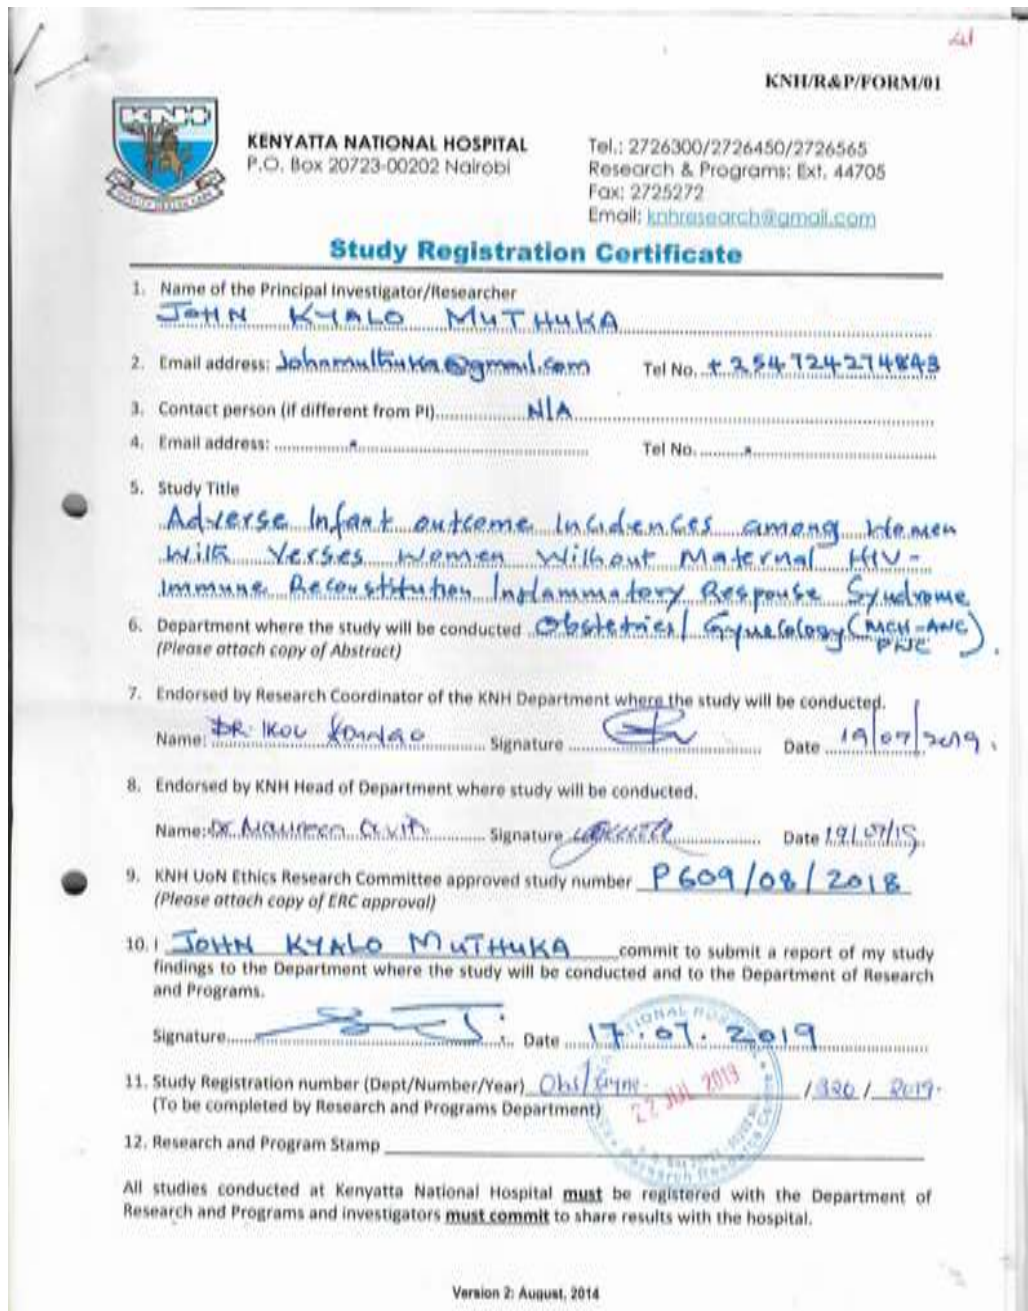 41
KNH/R&P/FORM/01
KNH
KENYATTA NATIONAL HOSPITAL
P.O. Box 20723-00202 Nairobi
Tel.: 2726300/2726450/2726565
Research & Programs: Ext. 44705
Fax: 2725272
Email: knhresearch@gmail.com
Study Registration Certificate
1. Name of the Principal Investigator/Researcher
JOHN KYALO MUTHUKA
2. Email address: Johnmuthuka@gmail.com Tel No. +254 724274843
3. Contact person (if different from PI) N/A
4. Email address: Tel No.
5. Study Title
Adverse Infant outcome Incidences among Women
With Verses Women Without Maternal HIV-
Immune Reconstitution Inflammatory Response Syndrome
6. Department where the study will be conducted Obstetrics/ Gynecology (MCH-ANC
PNC).
(Please attach copy of Abstract)
7. Endorsed by Research Coordinator of the KNH Department where the study will be conducted.
Name: DR. IKOL Signature Date 19/07/2019.
8. Endorsed by KNH Head of Department where study will be conducted.
Name: Dr. Maureen Signature Date 19/07/19
9. KNH UoN Ethics Research Committee approved study number P609/08/2018
(Please attach copy of ERC approval)
10. I JOHN KYALO MUTHUKA commit to submit a report of my study
findings to the Department where the study will be conducted and to the Department of Research
and Programs.
Signature Date 17.07.2019
11. Study Registration number (Dept/Number/Year) Obs/Gyne. /320/ 2019.
22 JUL 2019
(To be completed by Research and Programs Department)
12. Research and Program Stamp
All studies conducted at Kenyatta National Hospital must be registered with the Department of
Research and Programs and investigators must commit to share results with the hospital.
Version 2: August, 2014